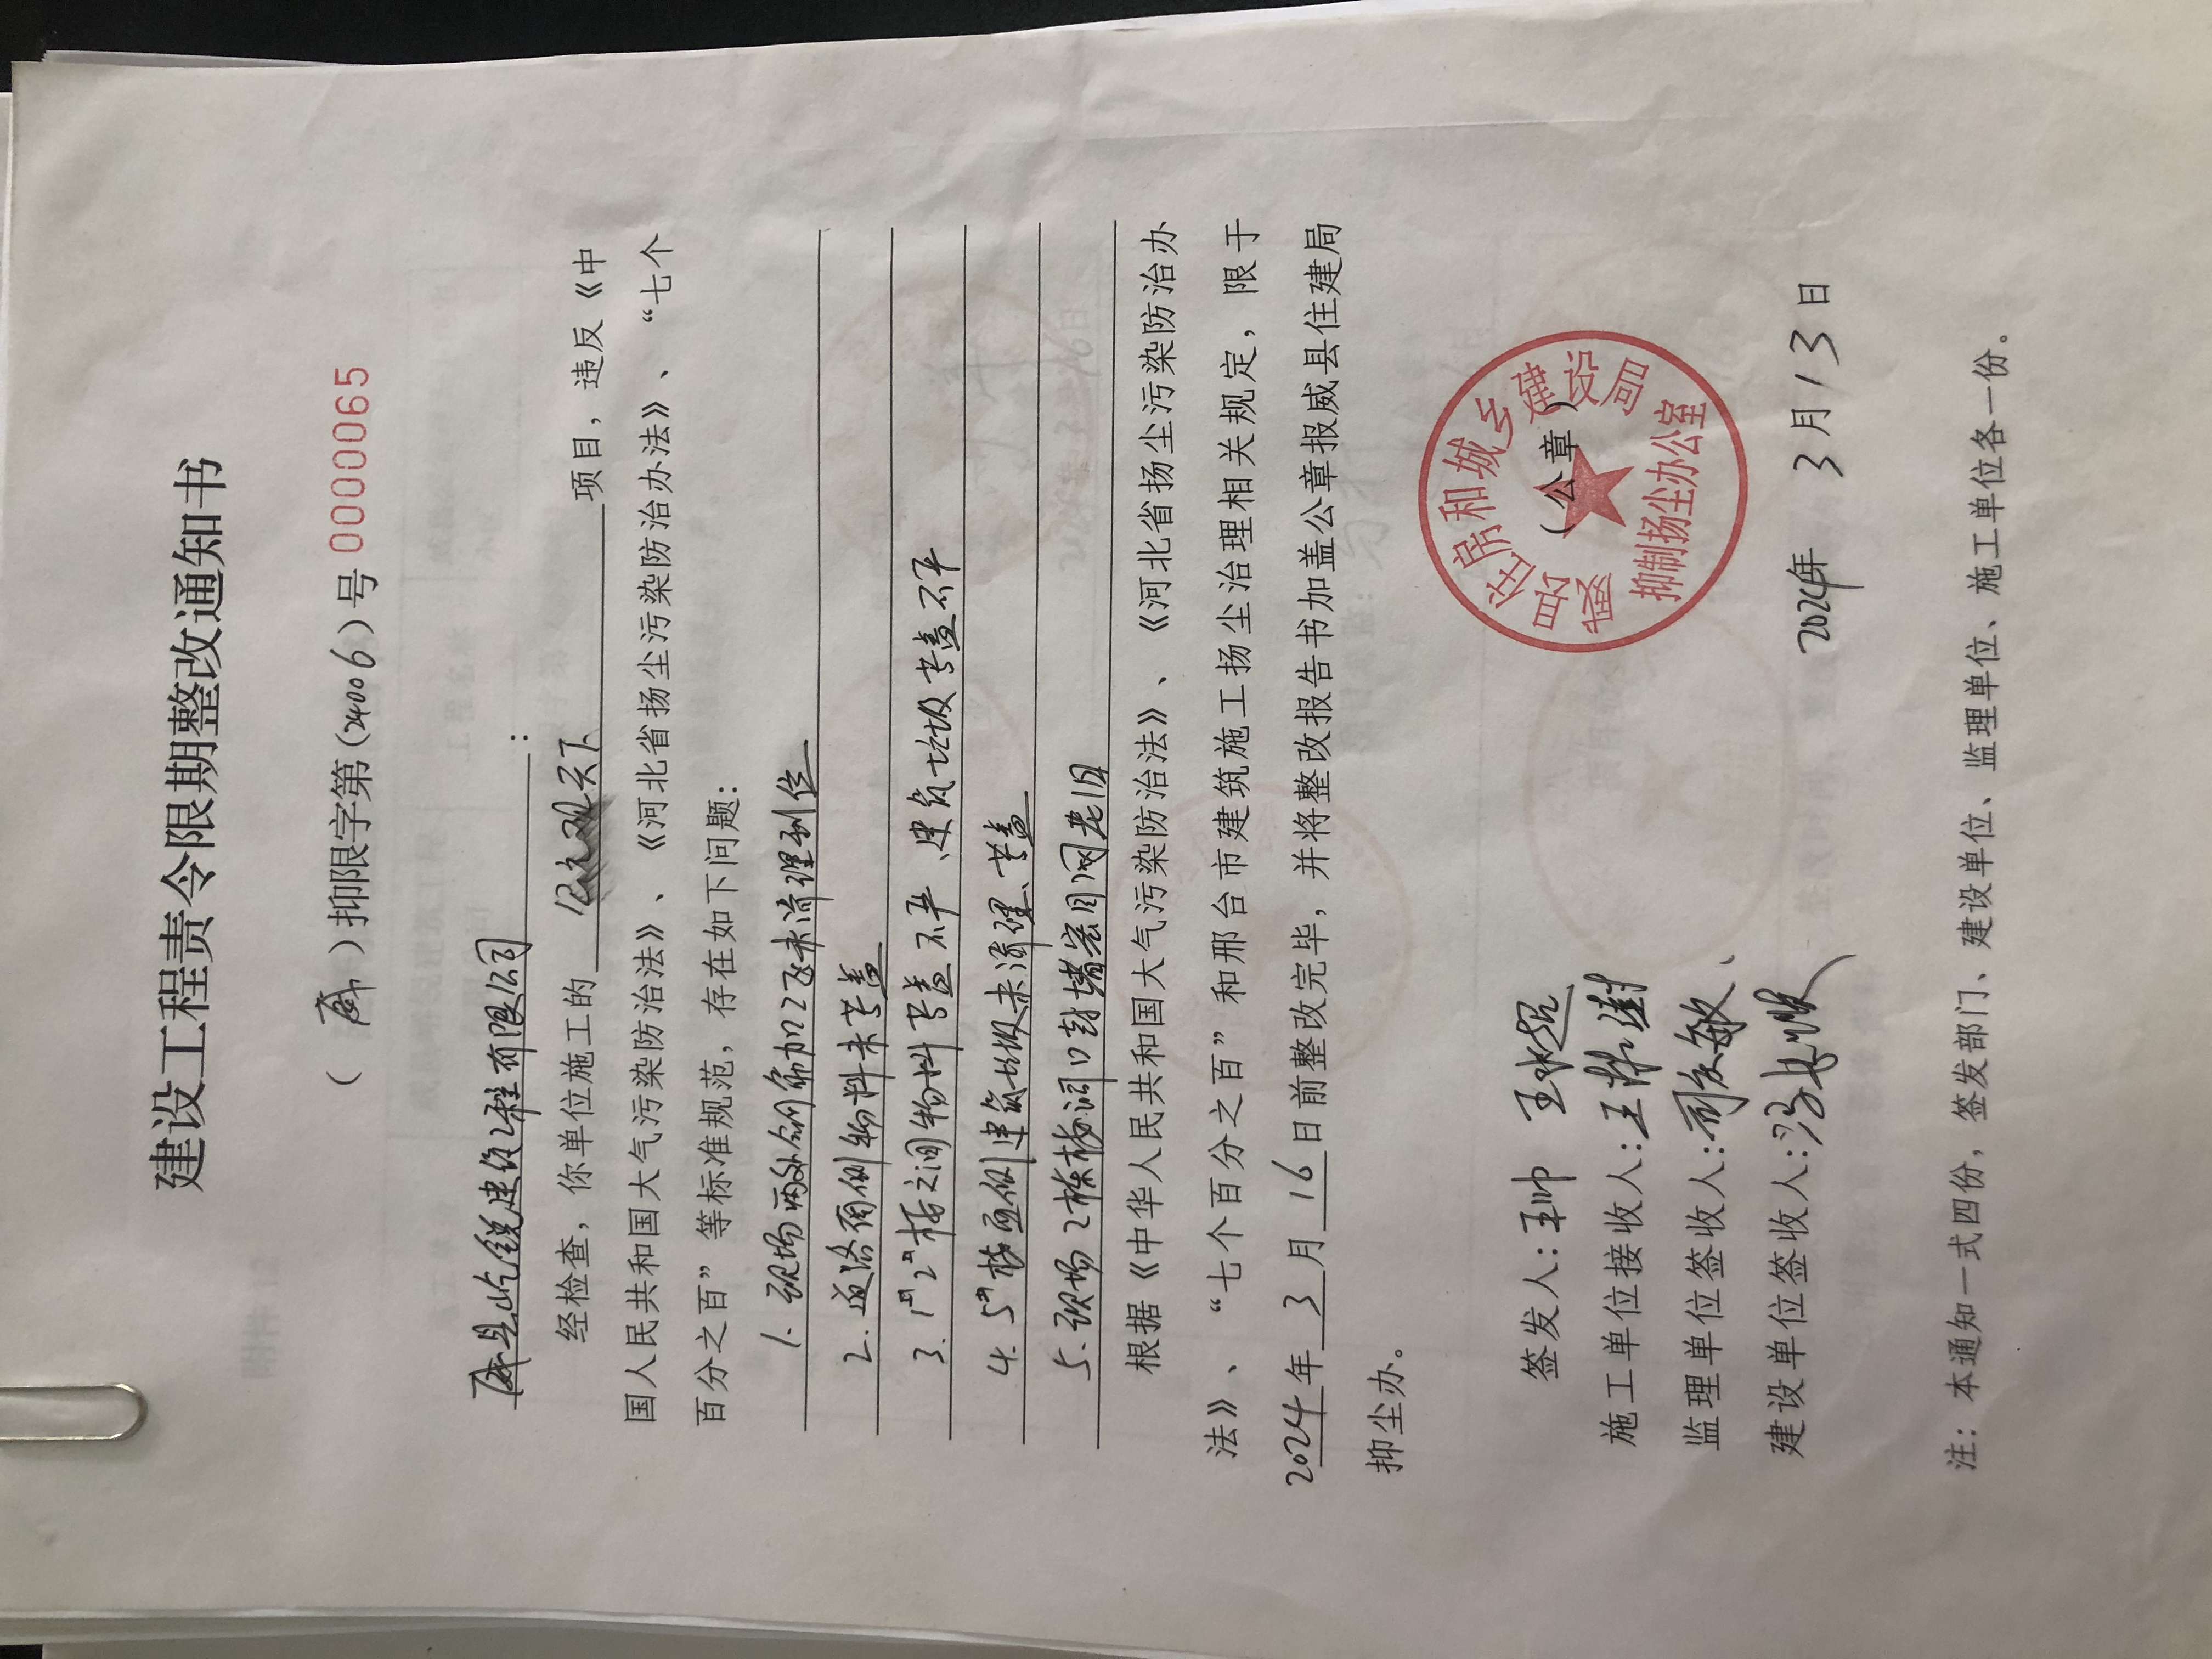 建设工程责令限期整改通知书
（威）抑限字第（24006）号 0000065
威县屹锐建设工程有限公司：
经检查，你单位施工的 天下 项目，违反《中
国人民共和国大气污染防治法》、《河北省扬尘污染防治办法》、“七个
百分之百”等标准规范，存在如下问题：
1. 现场两处钢筋加工区未清理到位
2. 道路西侧物料未苫盖
3. 1# 2#楼之间物料苫盖不严、建筑垃圾苫盖不严
4. 5#楼西侧建筑垃圾未清理、苫盖
5. 现场2栋楼洞口封堵密目网老旧
根据《中华人民共和国大气污染防治法》、《河北省扬尘污染防治办
法》、“七个百分之百”和邢台市建筑施工扬尘治理相关规定，限于
2024年3月16日前整改完毕，并将整改报告书加盖公章报威县住建局
抑尘办。
威县住房和城乡建设局
（公章）
抑制扬尘办公室
签发人：王帅 王超
施工单位接收人：王
监理单位签收人：司敏
建设单位签收人：冯
2024年 3月13日
注：本通知一式四份，签发部门、建设单位、监理单位、施工单位各一份。